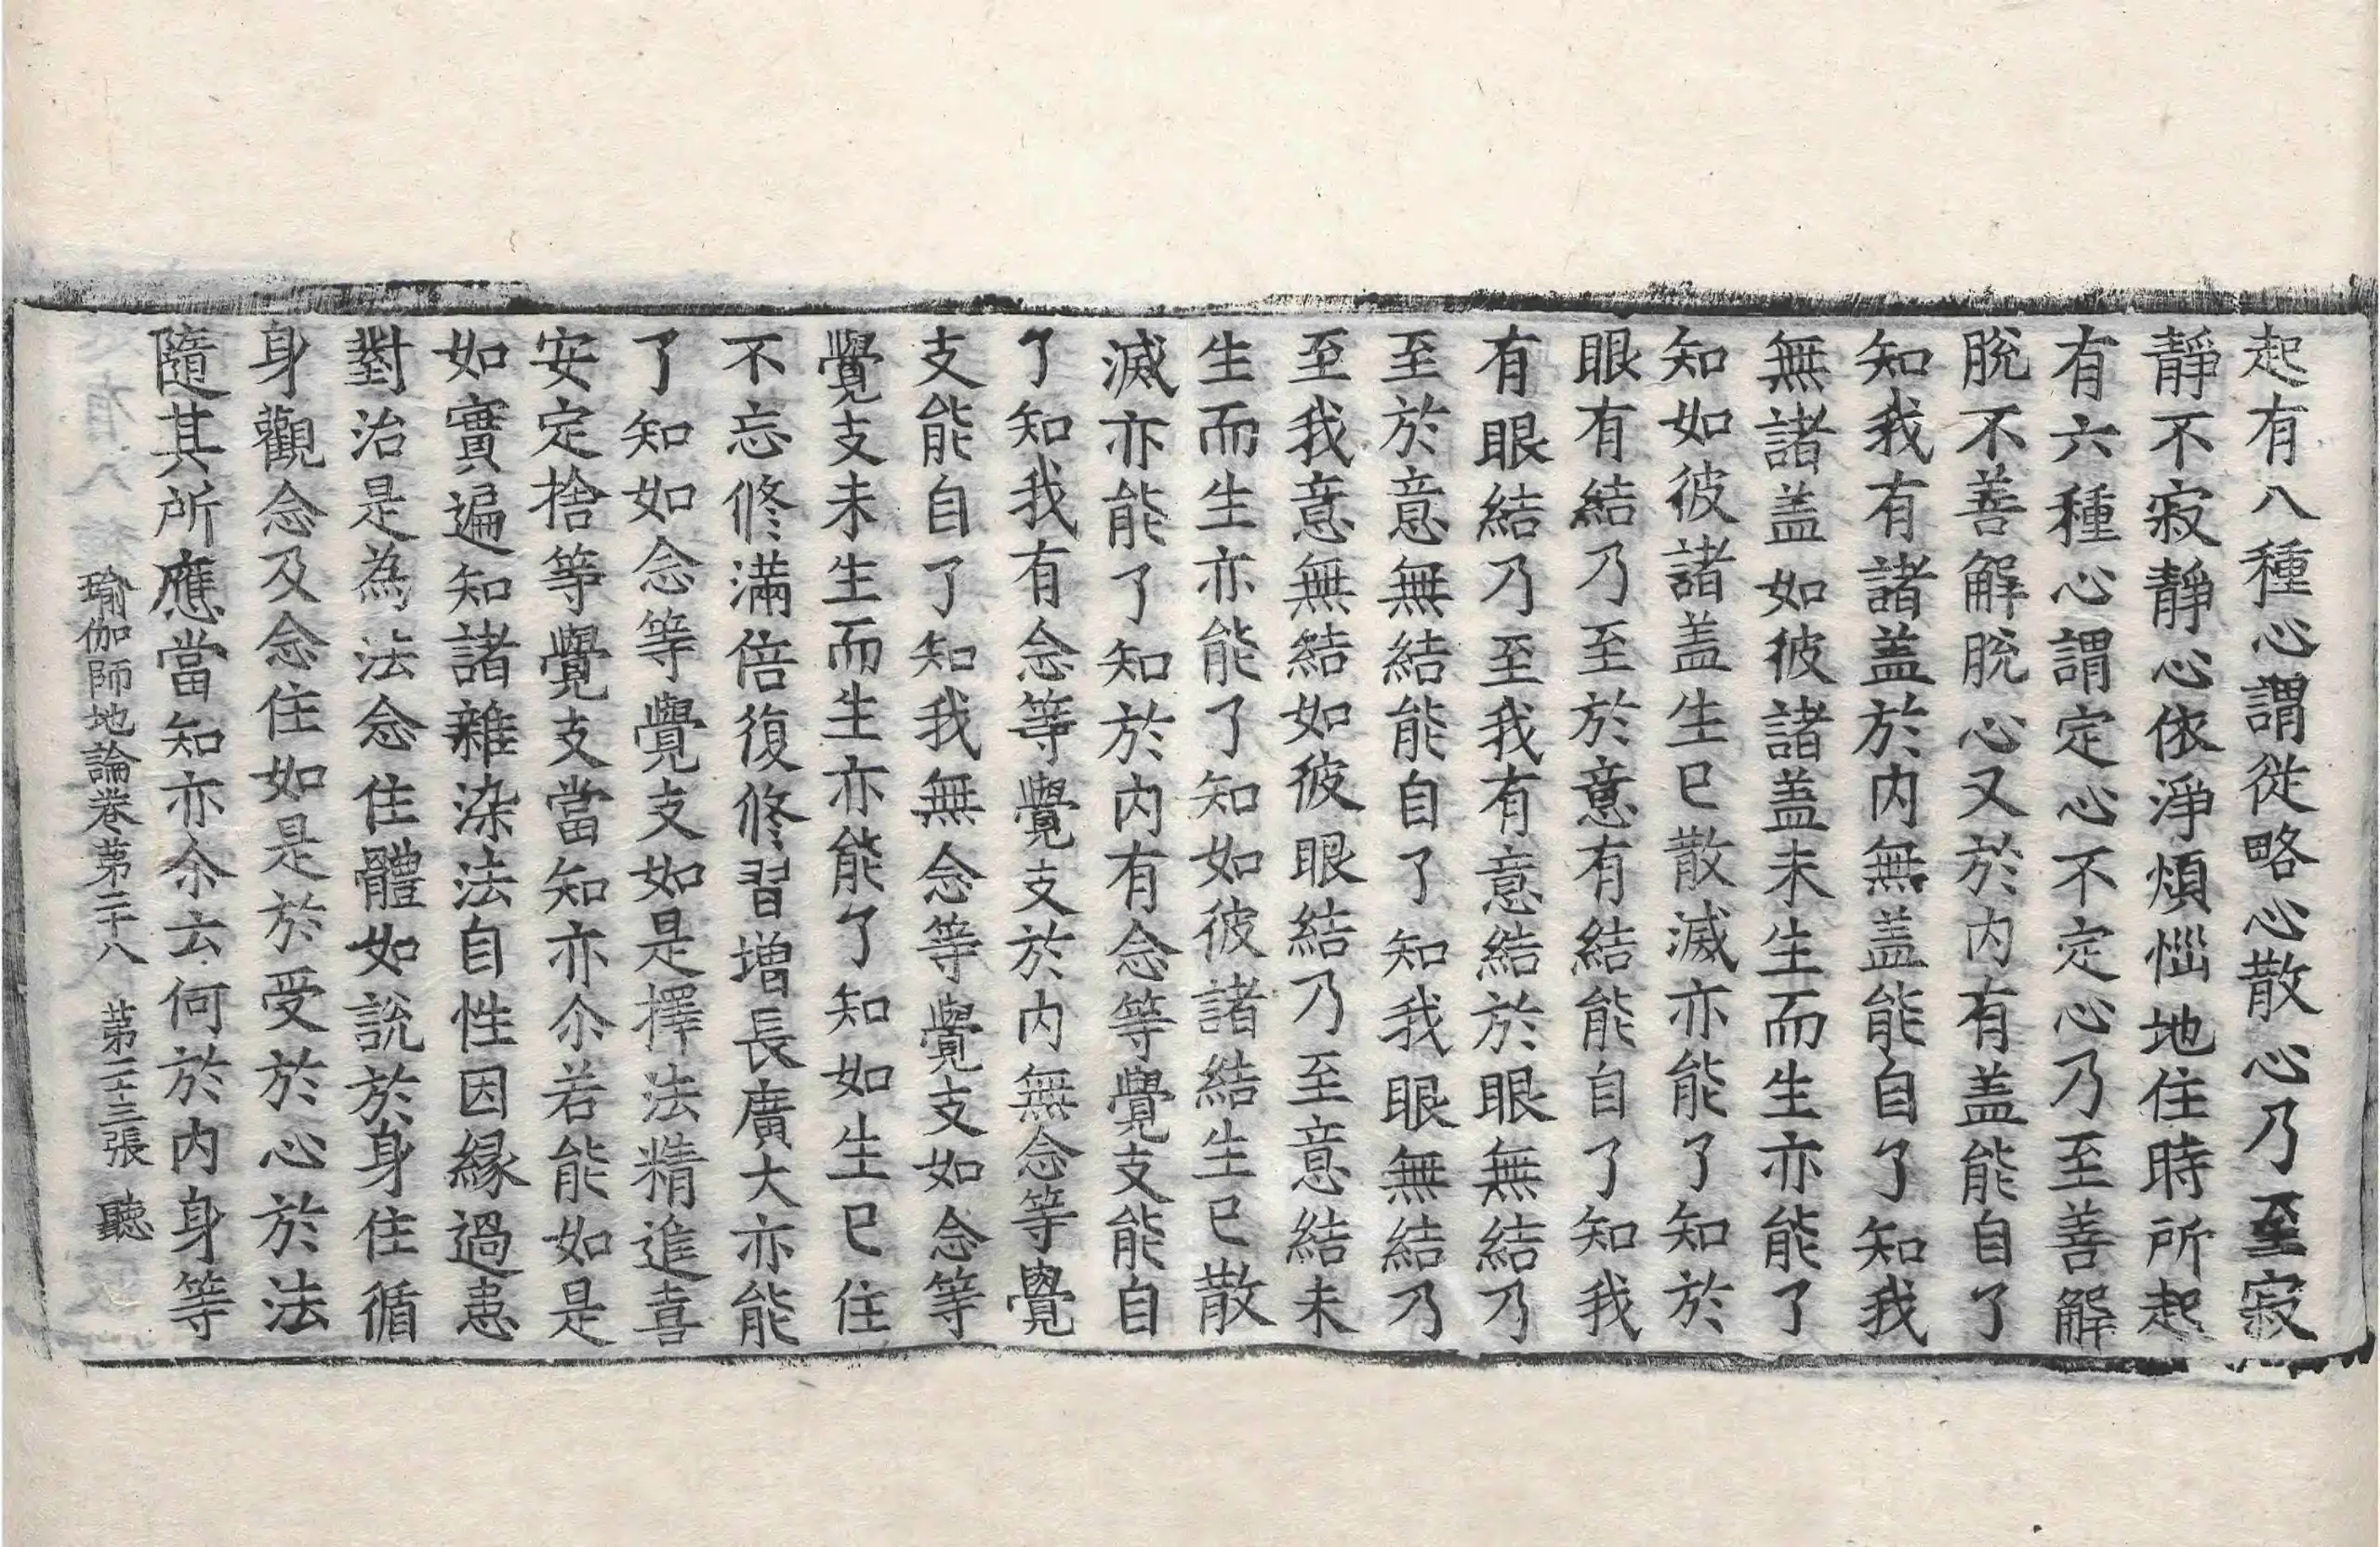 起有八種心謂從略心散心乃至寂
靜不寂靜心依淨煩惱地住時所起
有六種心謂定心不定心乃至善解
脫不善解脫心又於內有盖能自了
知我有諸盖於內無盖能自了知我
無諸盖如彼諸盖未生而生亦能了
知如彼諸盖生已散滅亦能了知於
眼有結乃至於意有結能自了知我
有眼結乃至我有意結於眼無結乃
至於意無結能自了知我眼無結乃
至我意無結如彼眼結乃至意結未
生而生亦能了知如彼諸結生已散
滅亦能了知於內有念等覺支能自
了知我有念等覺支於內無念等覺
支能自了知我無念等覺支如念等
覺支未生而生亦能了知如生已住
不忘修滿倍復修習增長廣大亦能
了知如念等覺支如是擇法精進喜
安定捨等覺支當知亦尒若能如是
如實遍知諸雜染法自性因緣過患
對治是為法念住體如說於身住循
身觀念及念住如是於受於心於法
隨其所應當知亦尒云何於內身等
瑜伽師地論卷第二十八 第二十三張 聽